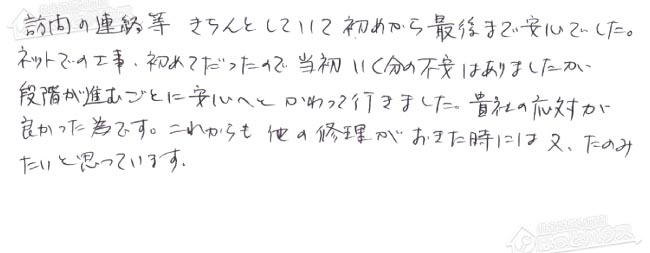 訪問の連絡等 きちんとしていて 初めから最後まで安心でした。
ネットでの工事、初めてだったので 当初 いく分の不安はありましたが
段階が進むごとに安心へと かわって行きました。貴社の応対が
良かった為です。これからも 他の修理が おきた時には 又、たのみ
たいと思っています。